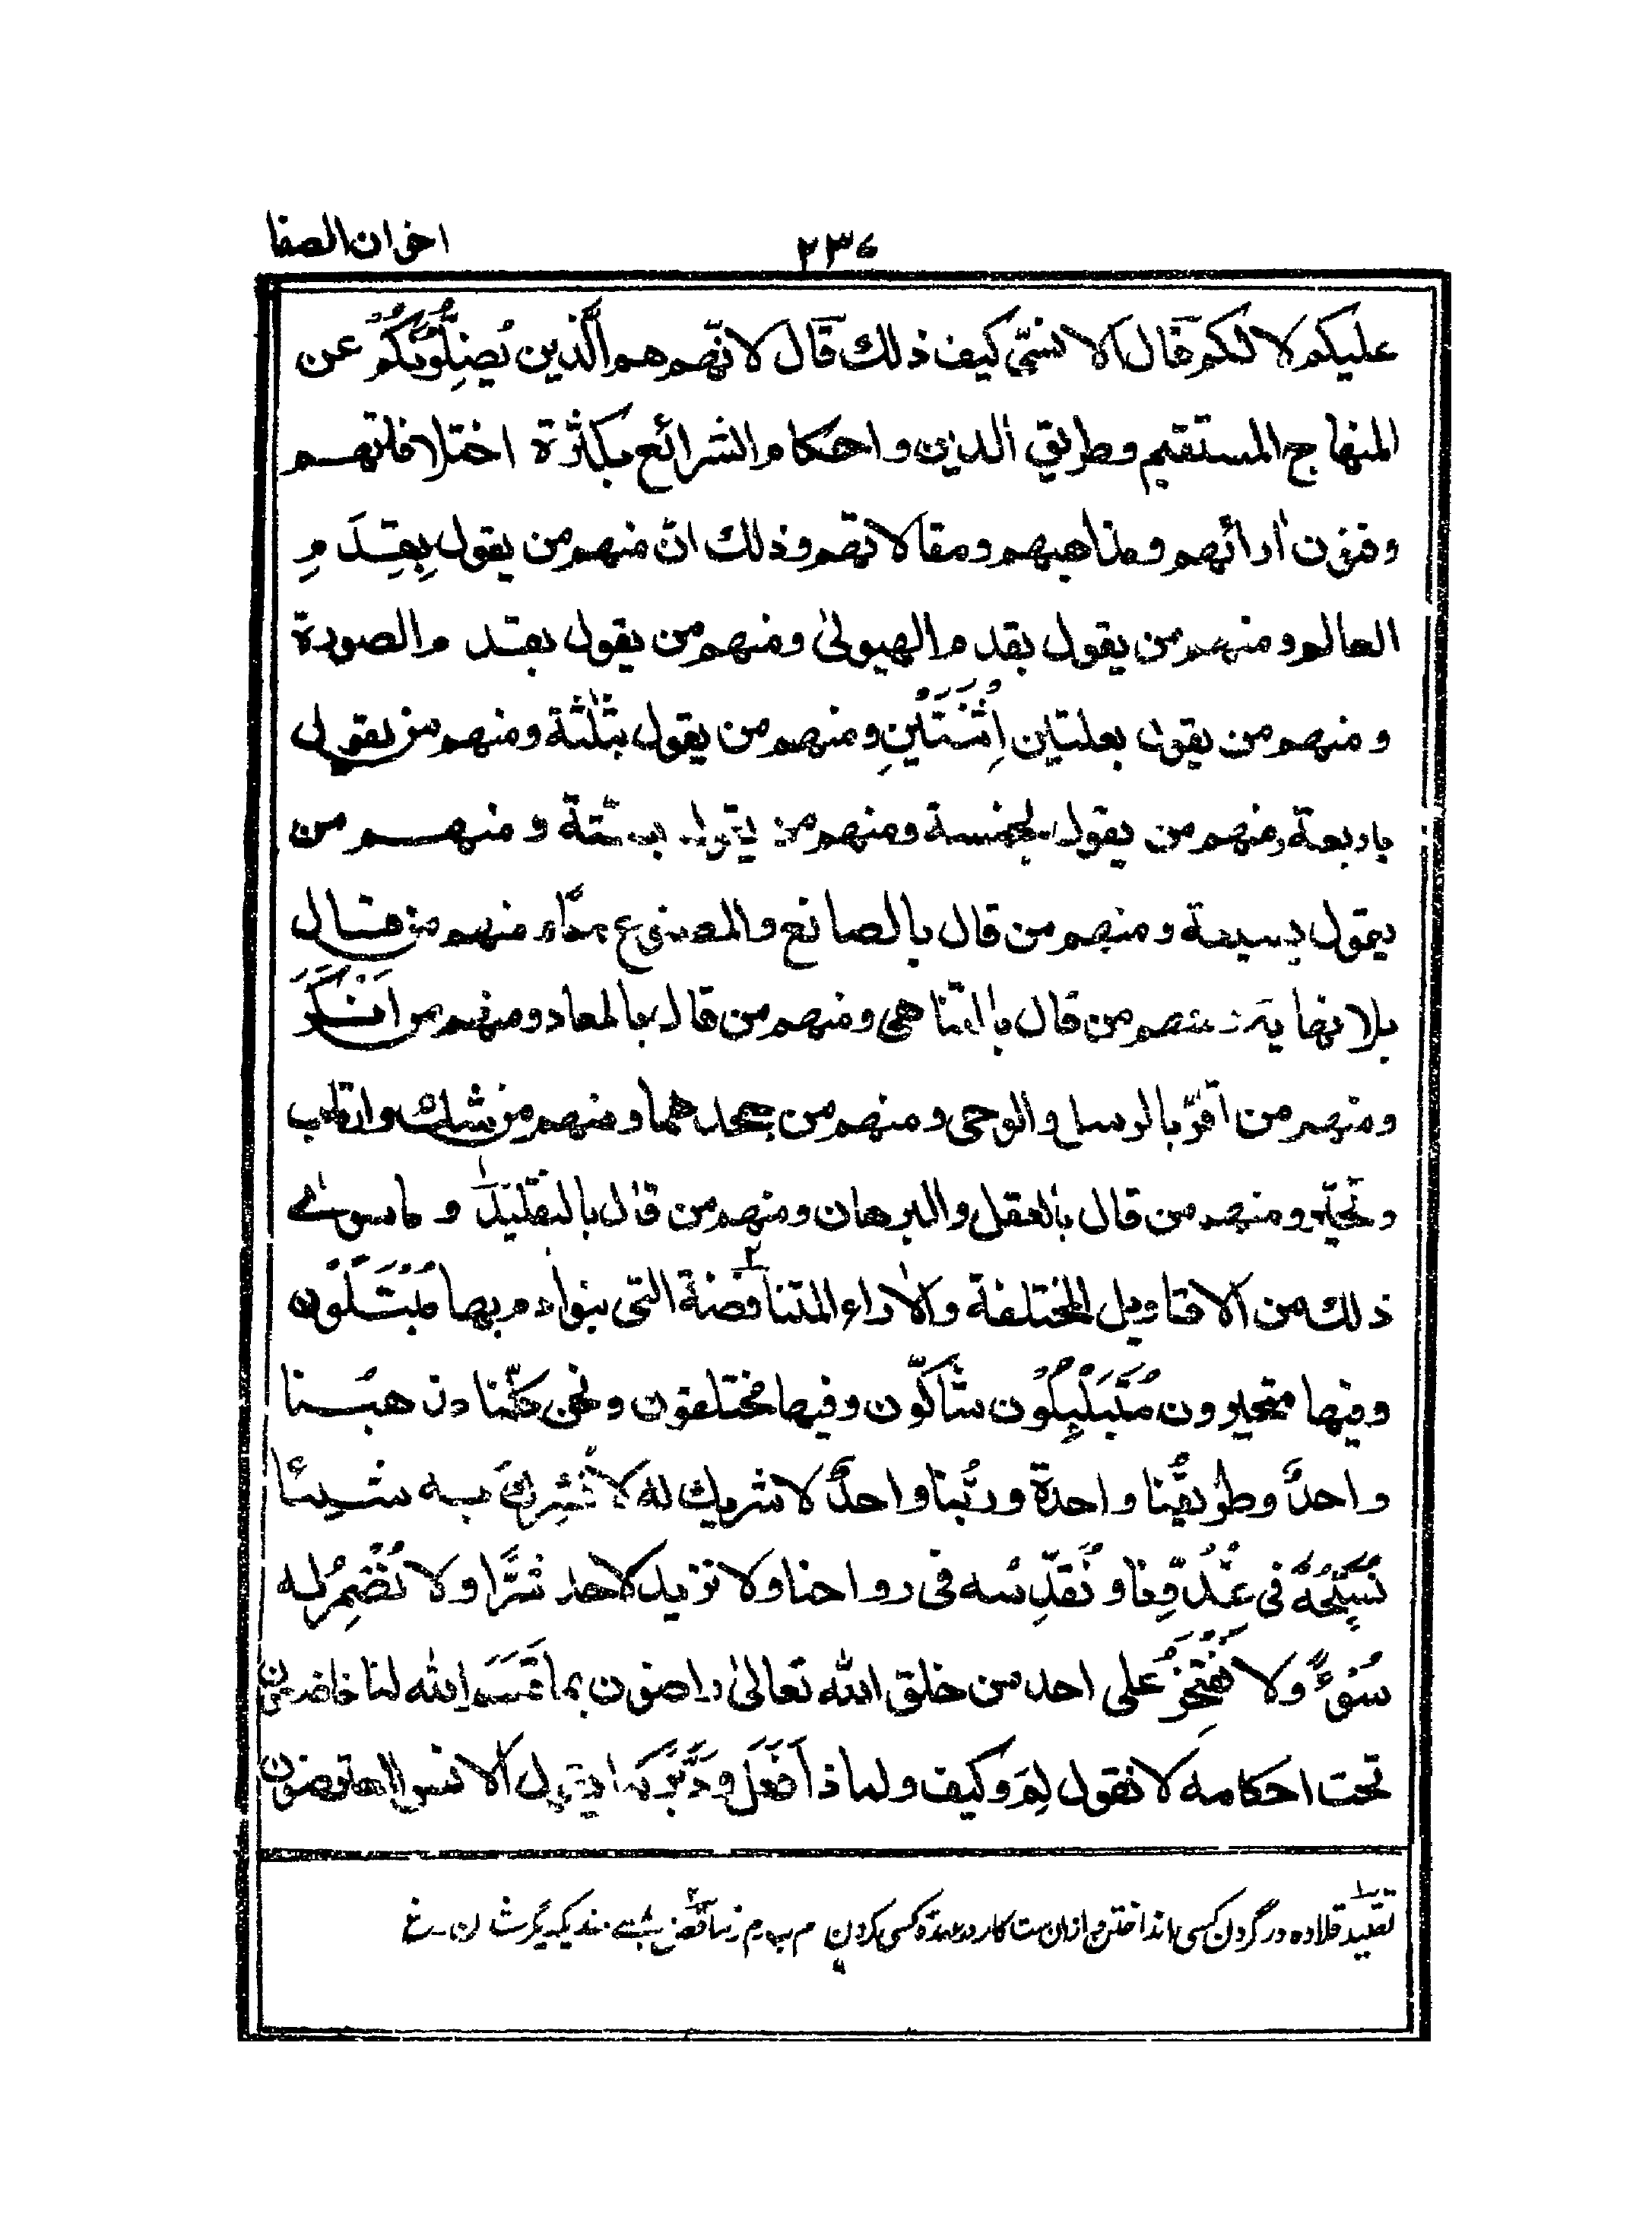 اخوان الصفا
عليكم لا لكم قَال الانسيّ كيف ذلك قَال لانّهم هم الَّذين يُضِلُّونَكُمْ عن
المنهاج المستقيم وطريق الدين واحكام الشرائع بكثرة اختلافاتهم
وفنون اٰرائهم ومذاهبهم ومقالاتهم وذلك انّ منهم من يقول بِقِدَمِ
العالم ومنهم من يقول بقدم الهيولىٰ ومنهم من يقول بقدم الصورة
ومنهم من يقول بعلتين اِثْنَتَيْنِ ومنهم من يقول بثلٰثة ومنهم من يقول
باربعة ومنهم من يقول بخمسة ومنهم من يقول بستّة ومنهم من
يقول بسبعة ومنهم من قال بالصانع والمصنوع معًا ومنهم من قال
بلا نهاية ومنهم من قال بالتناهى ومنهم من قال بالمعاد ومنهم من اَنْكَرَ
ومنهم من اقرّ بالرسل والوحى ومنهم من جحدهما ومنهم من شك وارتاب
وتحيّر ومنهم من قال بالعقل والبرهان ومنهم من قال بالتقليد و ماسوٰے
ذلك من الاقاويل المختلفة والاٰراء المتناقضة التى بنواٰدم بها مُبْتَلَوْن
وفيها متحيرون مُتَبَلْبِلُوْن شاكّون وفيها مختلفون ونحن كلّنا مذهبُنا
واحدٌ وطريقُنا واحدة وربُّنا واحدٌ لا شريك له لا نُشْرِكُ به شيئا
نُسَبِّحُهُ فى غُدُوِّنا ونُقَدِّسُه فى رواحنا ولا نريد لاحد شرًّا ولا نُضْمِرُ له
سُوْءً ولا نَفْتَخِرُ على احد من خلق الله تعالىٰ راضون بما قَسَمَ الله لنا خاضعون
تحت احكامه لا نقول لِمَ وكيف ولماذا فَعَلَ ودَبَّرَ كما يقول الانس المعترضون
تقليد قلاده در گردن كسى انداختن و ازان ست كار در عهده كسى كردن